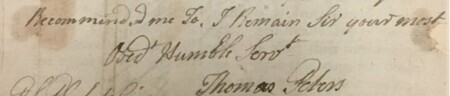 Recommend.d me To. I Remain Sir your most
Obedt Humble Servt
Thomas Peters